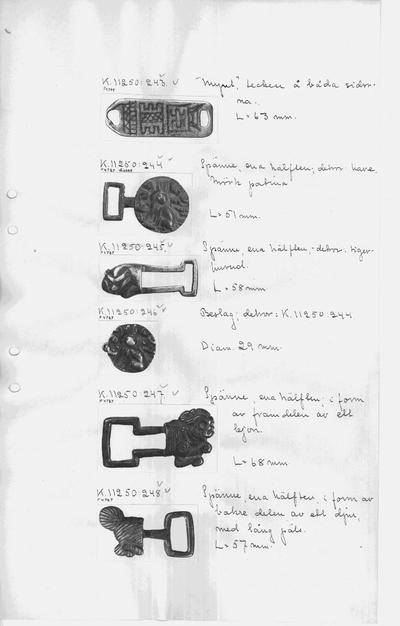 K.11250:243. v "Mynt", tecken å båda sidor-
na.
L = 63 mm.
K.11250:244 v Spänne, ena hälften; dekor: hare.
Mörk patina
L = 51 mm.
K.11250:245. v Spänne, ena hälften; dekor: tiger-
huvud.
L = 58 mm.
K.11250:246 v Beslag; dekor = K.11250:244
Diam. 29 mm.
K.11250:247. v Spänne, ena hälften; i form
av framdelen av ett
lejon.
L = 68 mm
K.11250:248. v Spänne, ena hälften, i form av
bakre delen av ett djur,
med lång päls.
L = 57 mm.